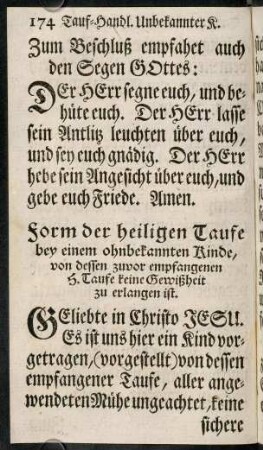 174 Tauf-Handl. Unbekannter K.
Zum Beschluß empfahet auch
den Segen GOttes:
DEr HErr segne euch, und be-
hüte euch. Der HErr lasse
sein Antlitz leuchten über euch,
und sey euch gnädig. Der HErr
hebe sein Angesicht über euch, und
gebe euch Friede. Amen.
Form der heiligen Taufe
bey einem ohnbekannten Kinde,
von dessen zuvor empfangenen
H. Taufe keine Gewißheit
zu erlangen ist.
GEliebte in Christo JESU.
Es ist uns hier ein Kind vor-
getragen, (vorgestellt) von dessen
empfangener Taufe, aller ange-
wendeten Mühe ungeachtet, keine
sichere